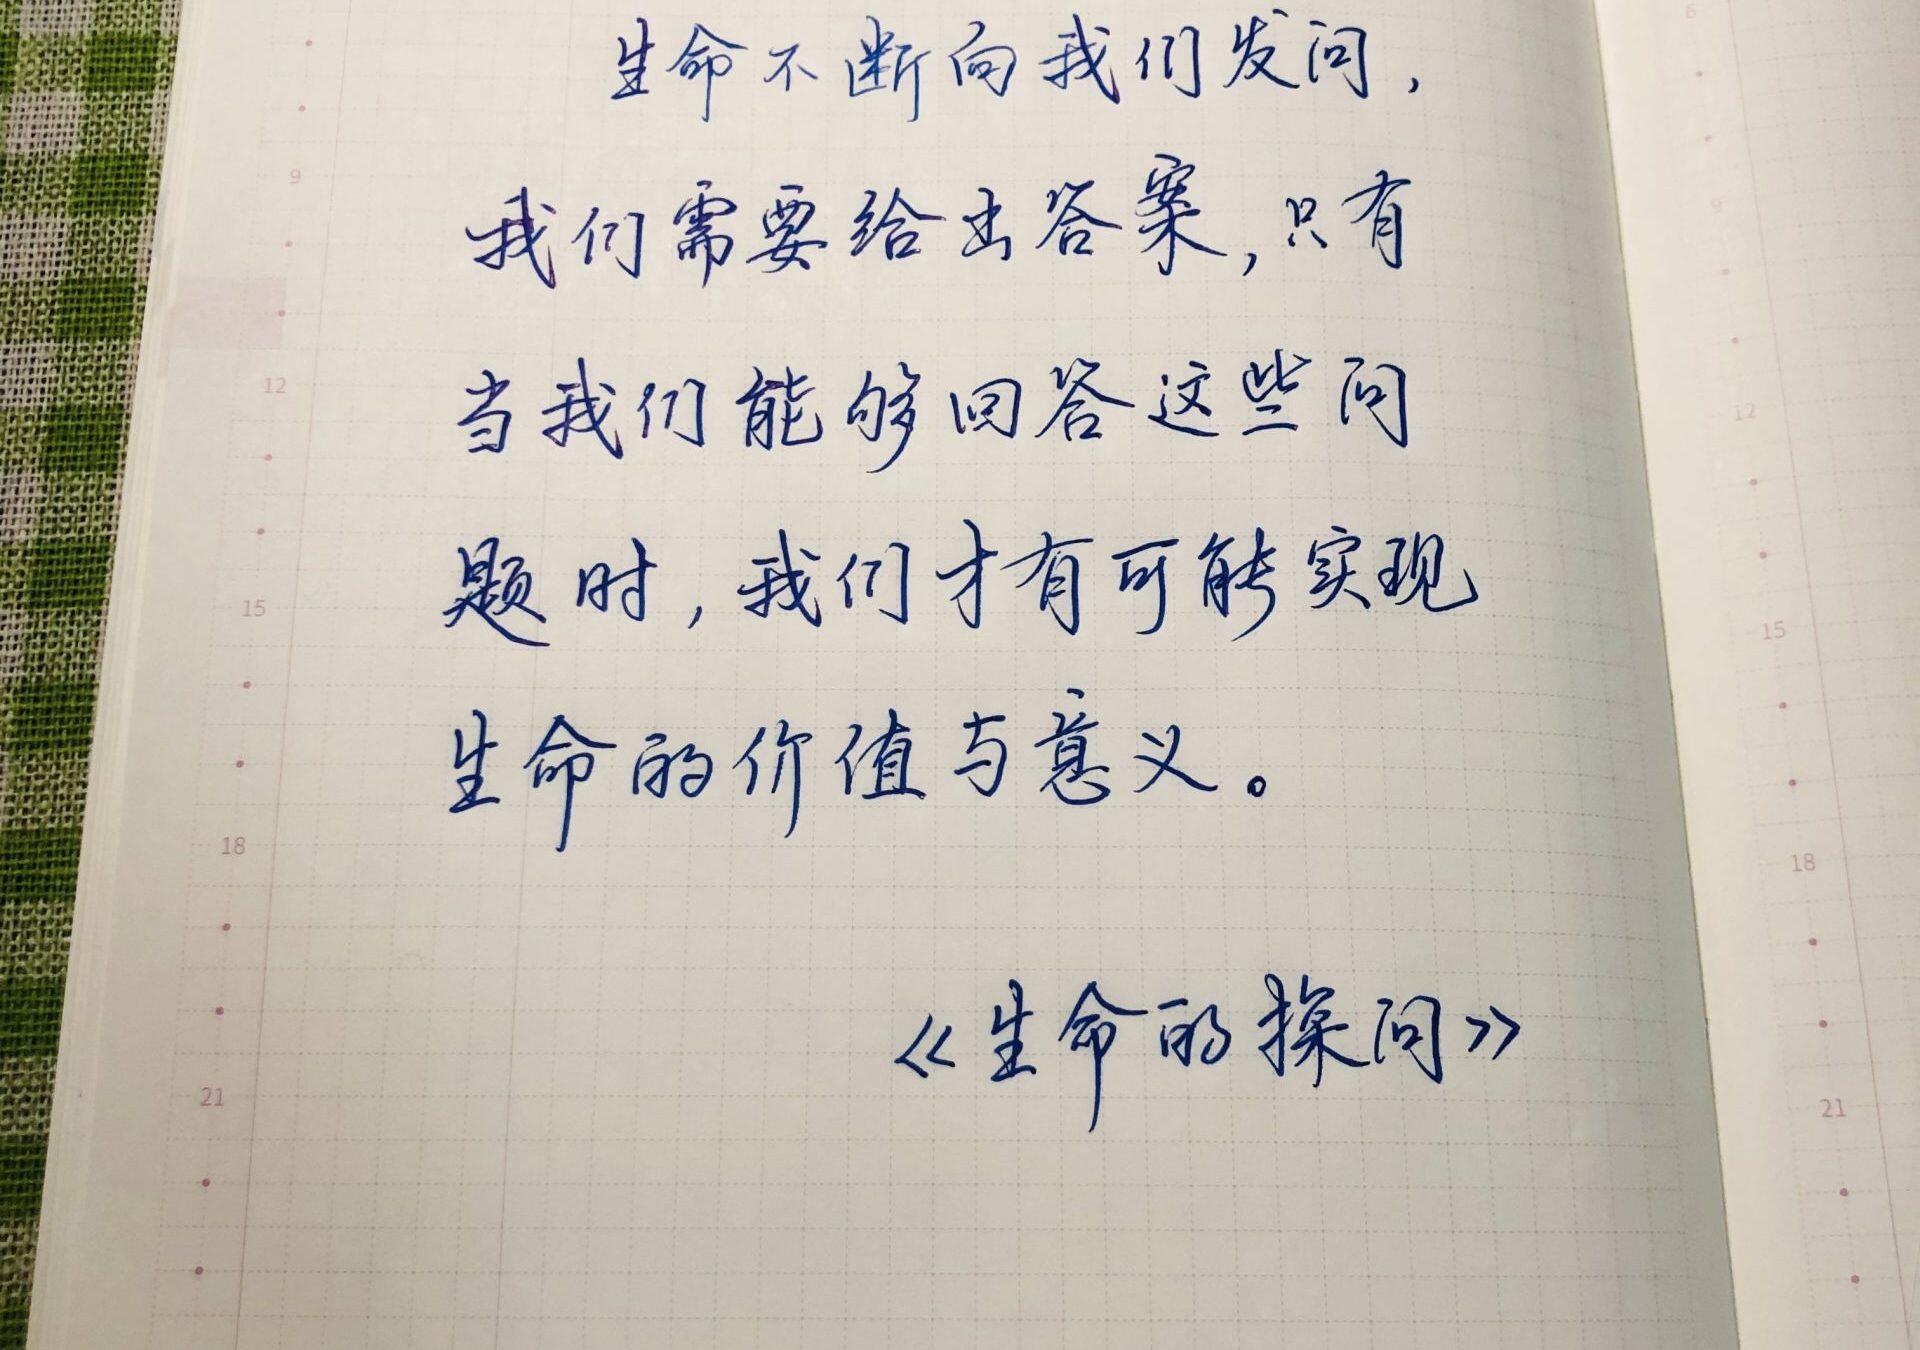 生命不断向我们发问，
我们需要给出答案，只有
当我们能够回答这些问
题时，我们才有可能实现
生命的价值与意义。
《生命的探问》
9
12
15
18
21
6
9
12
15
18
21